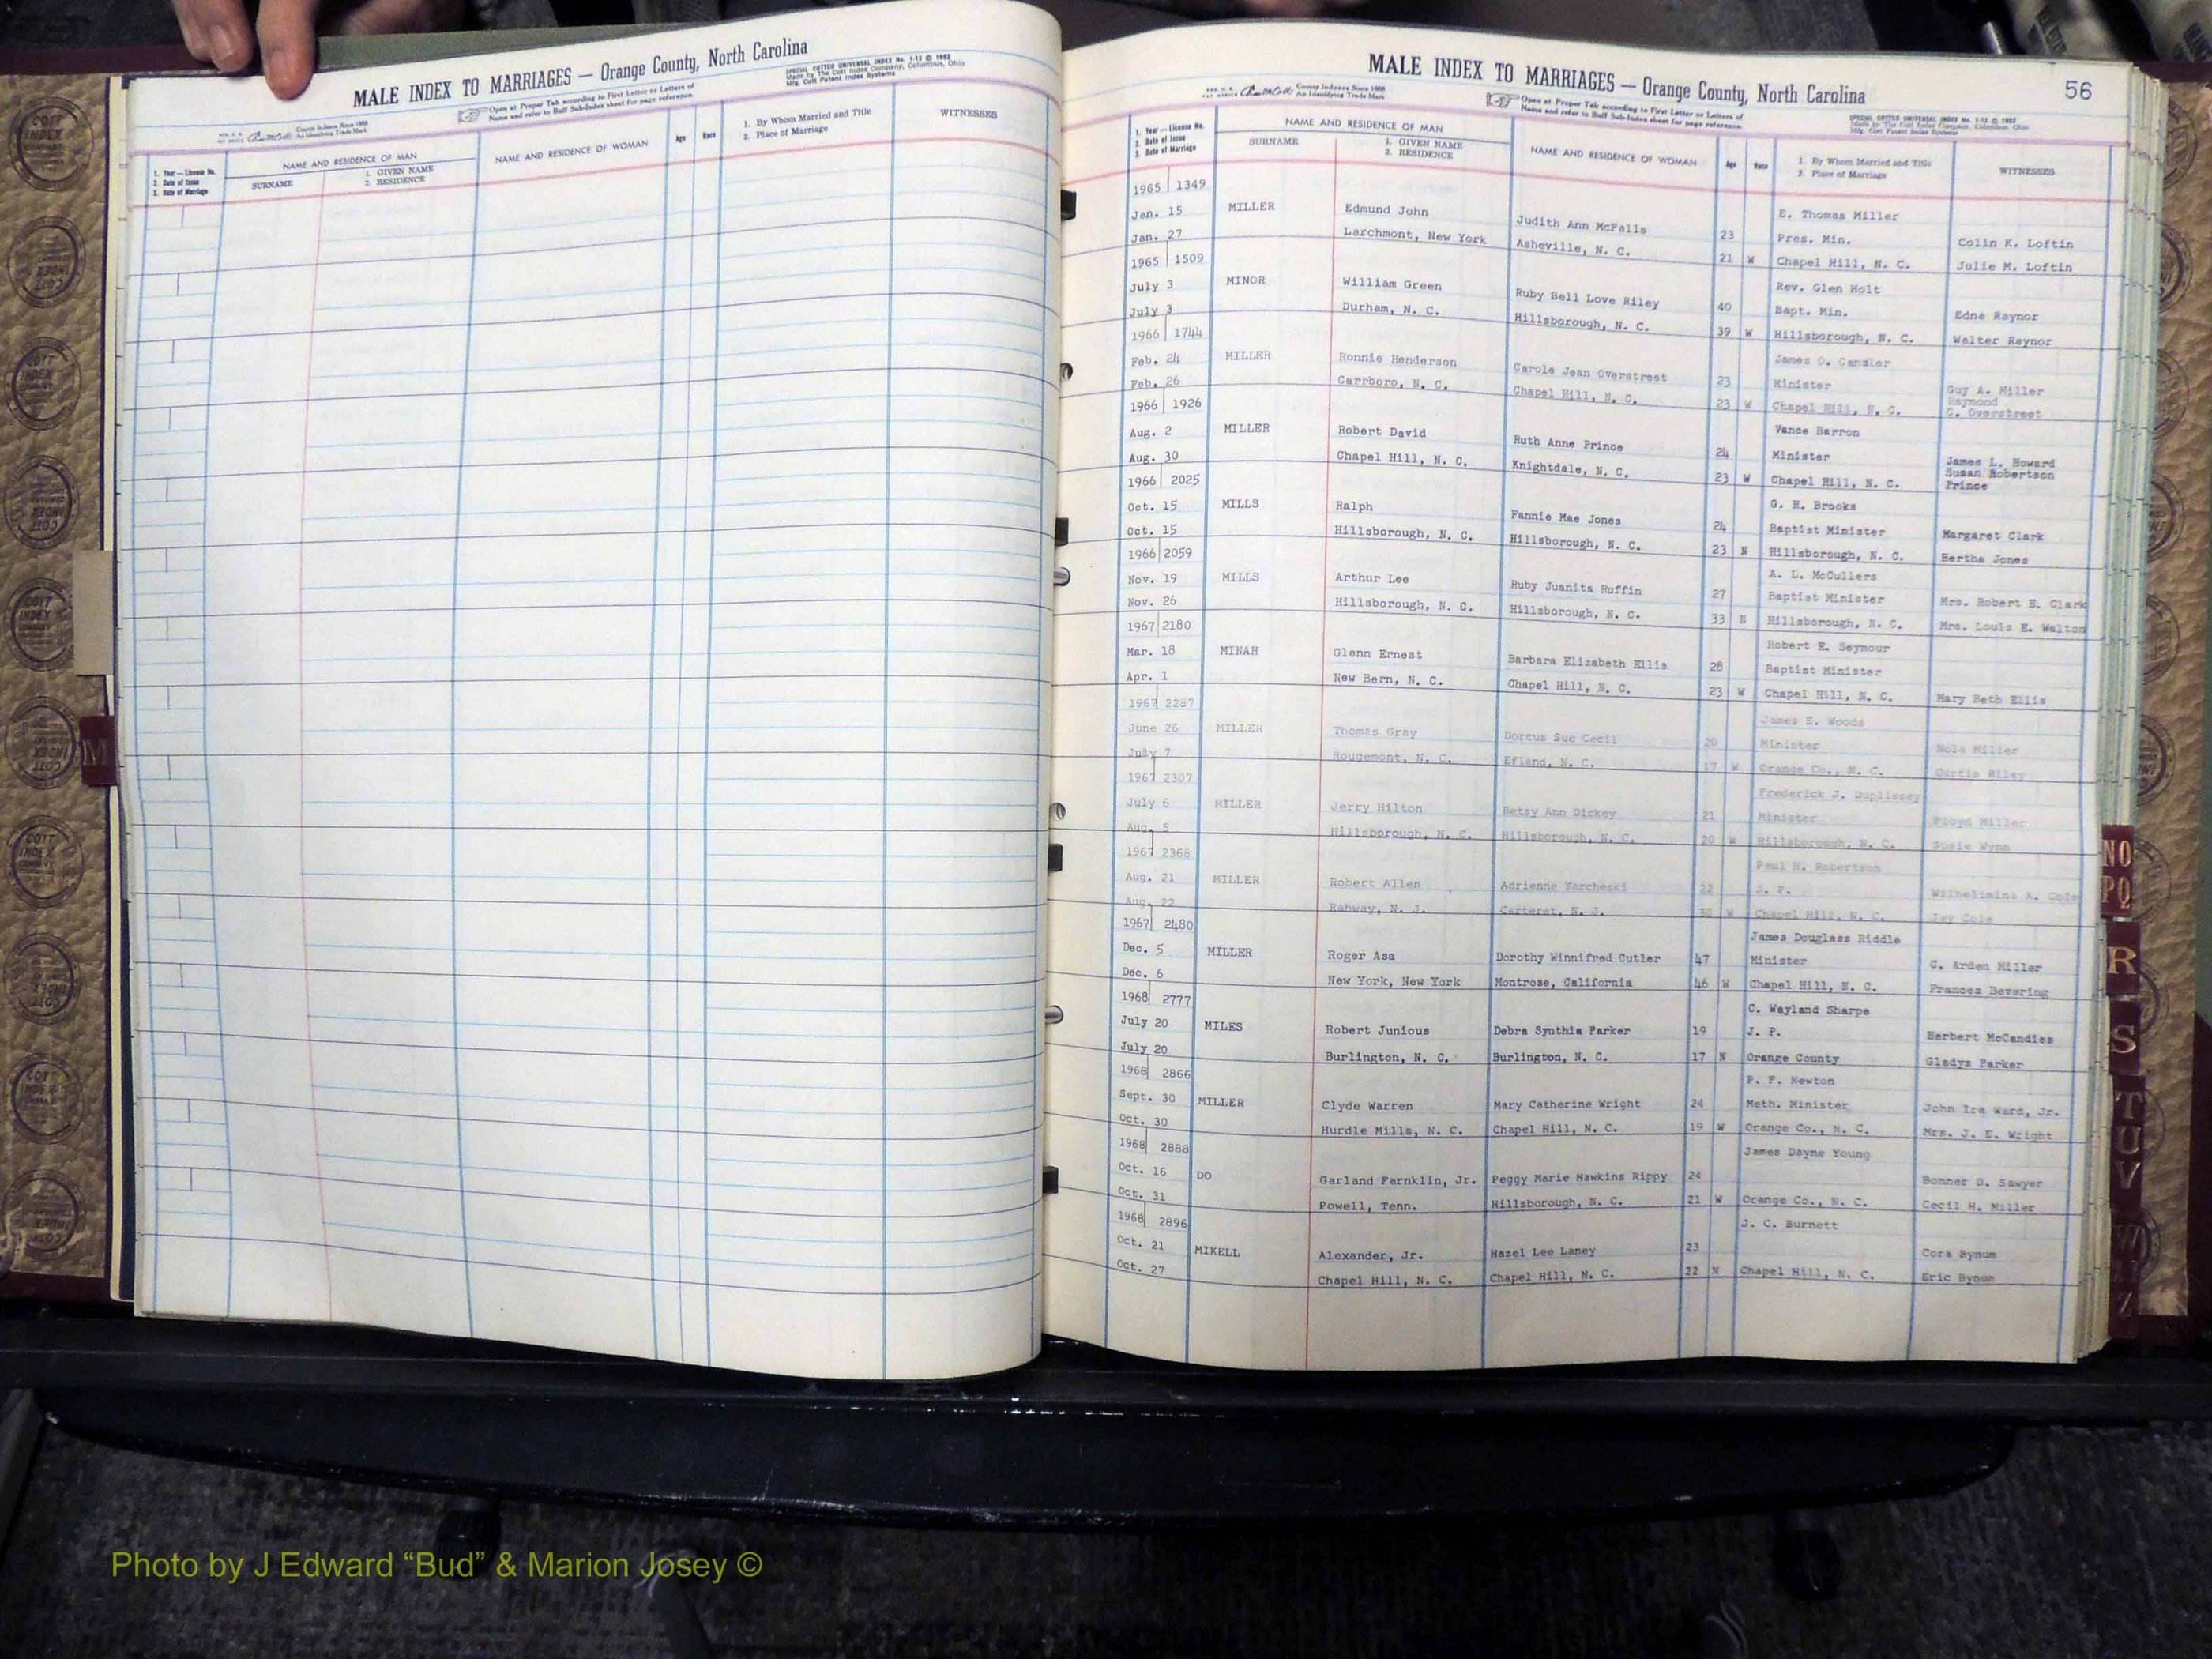 MALE INDEX TO MARRIAGES — Orange County, North Carolina
SPECIAL COTTED UNIVERSAL INDEX No. 1-12 © 1952
Made by The Cott Index Company, Columbus, Ohio
Mfg. Cott Patent Index Systems
Open at Proper Tab according to First Letter or Letters of
Name and refer to Buff Sub-Index sheet for page reference.
County Indexes Since 1888
An Identifying Trade Mark
1. Year — License No.
2. Date of Issue
3. Date of Marriage
NAME AND RESIDENCE OF MAN
SURNAME
1. GIVEN NAME
2. RESIDENCE
NAME AND RESIDENCE OF WOMAN
Age
Race
1. By Whom Married and Title
2. Place of Marriage
WITNESSES
MALE INDEX TO MARRIAGES — Orange County, North Carolina
56
County Indexes Since 1888
An Identifying Trade Mark
Open at Proper Tab according to First Letter or Letters of
Name and refer to Buff Sub-Index sheet for page reference.
SPECIAL COTTED UNIVERSAL INDEX No. 1-12 © 1952
Made by The Cott Index Company, Columbus, Ohio
Mfg. Cott Patent Index Systems
1. Year — License No.
2. Date of Issue
3. Date of Marriage
NAME AND RESIDENCE OF MAN
SURNAME
1. GIVEN NAME
2. RESIDENCE
NAME AND RESIDENCE OF WOMAN
Age
Race
1. By Whom Married and Title
2. Place of Marriage
WITNESSES
1965 1349
E. Thomas Miller
Jan. 15 MILLER Edmund John Judith Ann McFalls 23 Pres. Min. Colin K. Loftin
Jan. 27 Larchmont, New York Asheville, N. C. 21 W Chapel Hill, N. C. Julie M. Loftin
1965 1509
Rev. Glen Holt
July 3 MINOR William Green Ruby Bell Love Riley 40 Bapt. Min. Edna Raynor
July 3 Durham, N. C. Hillsborough, N. C. 39 W Hillsborough, N. C. Walter Raynor
1966 1744
James O. Cansler
Feb. 24 MILLER Ronnie Henderson Carole Jean Overstreet 23 Minister Guy A. Miller
Raymond
Feb. 26 Carrboro, N. C. Chapel Hill, N. C. 23 W Chapel Hill, N. C. C. Overstreet
1966 1926
Vance Barron
Aug. 2 MILLER Robert David Ruth Anne Prince 24 Minister James L. Howard
Susan Robertson
Aug. 30 Chapel Hill, N. C. Knightdale, N. C. 23 W Chapel Hill, N. C. Prince
1966 2025
G. H. Brooks
Oct. 15 MILLS Ralph Fannie Mae Jones 24 Baptist Minister Margaret Clark
Oct. 15 Hillsborough, N. C. Hillsborough, N. C. 23 N Hillsborough, N. C. Bertha Jones
1966 2059
A. L. McCullers
Nov. 19 MILLS Arthur Lee Ruby Juanita Ruffin 27 Baptist Minister Mrs. Robert E. Clark
Nov. 26 Hillsborough, N. C. Hillsborough, N. C. 33 N Hillsborough, N. C. Mrs. Louis E. Walton
1967 2180
Robert E. Seymour
Mar. 18 MINAH Glenn Ernest Barbara Elizabeth Ellis 28 Baptist Minister
Apr. 1 New Bern, N. C. Chapel Hill, N. C. 23 W Chapel Hill, N. C. Mary Beth Ellis
1967 2287
James E. Woods
June 26 MILLER Thomas Gray Dorcus Sue Cecil 20 Minister Nola Miller
July 7 Rougemont, N. C. Efland, N. C. 17 W Orange Co., N. C. Curtis Riley
1967 2307
Frederick J. Duplissey
July 6 MILLER Jerry Hilton Betsy Ann Dickey 21 Minister Floyd Miller
Aug. 5 Hillsborough, N. C. Hillsborough, N. C. 20 W Hillsborough, N. C. Susie Wynn
1967 2368
Paul N. Robertson
Aug. 21 MILLER Robert Allen Adrienne Yarcheski 22 J. P. Wilhelimina A. Cole
Aug. 22 Rahway, N. J. Carteret, N. J. 30 W Chapel Hill, N. C. Jay Cole
1967 2480
James Douglass Riddle
Dec. 5 MILLER Roger Asa Dorothy Winnifred Cutler 47 Minister C. Arden Miller
Dec. 6 New York, New York Montrose, California 46 W Chapel Hill, N. C. Frances Bevering
1968 2777
C. Wayland Sharpe
July 20 MILES Robert Junious Debra Synthia Parker 19 J. P. Herbert McCandies
July 20 Burlington, N. C. Burlington, N. C. 17 N Orange County Gladys Parker
1968 2866
P. F. Newton
Sept. 30 MILLER Clyde Warren Mary Catherine Wright 24 Meth. Minister John Ira Ward, Jr.
Oct. 30 Hurdle Mills, N. C. Chapel Hill, N. C. 19 W Orange Co., N. C. Mrs. J. E. Wright
1968 2888
James Dayne Young
Oct. 16 DO Garland Farnklin, Jr. Peggy Marie Hawkins Rippy 24 Bonner D. Sawyer
Oct. 31 Powell, Tenn. Hillsborough, N. C. 21 W Orange Co., N. C. Cecil H. Miller
1968 2896
J. C. Burnett
Oct. 21 MIKELL Alexander, Jr. Hazel Lee Laney 23 Cora Bynum
Oct. 27 Chapel Hill, N. C. Chapel Hill, N. C. 22 N Chapel Hill, N. C. Eric Bynum
M
NO
PQ
R
S
T
UV
W
Z
COTT INDEX
Photo by J Edward “Bud” & Marion Josey ©